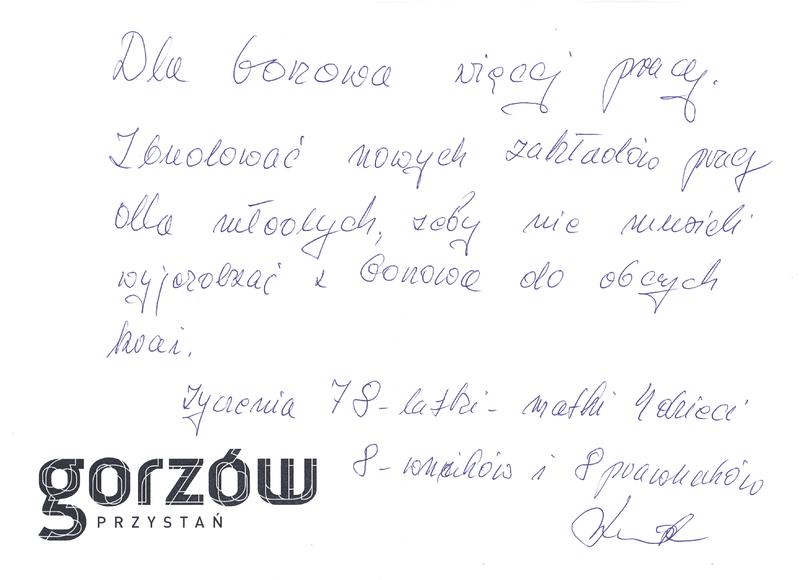 Dla Gorzowa więcej pracy.
Zbudować nowych zakładów pracy
dla młodych, żeby nie musieli
wyjeżdżać z Gorzowa do obcych
krai.
życzenia 78-latki- matki 4dzieci
8-wnuków i 8prawnuków
gorzów
PRZYSTAŃ